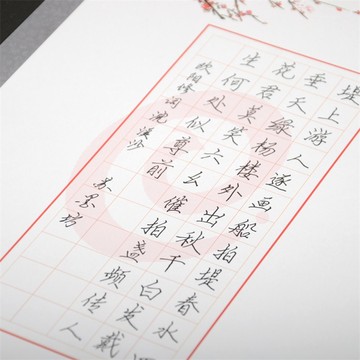 堤上游人逐画船拍堤春水四
垂天绿杨楼外出秋千白发戴
花君莫笑六幺催拍盏频传人
生何处似尊前
欧阳修词浣溪沙
苏墨坊